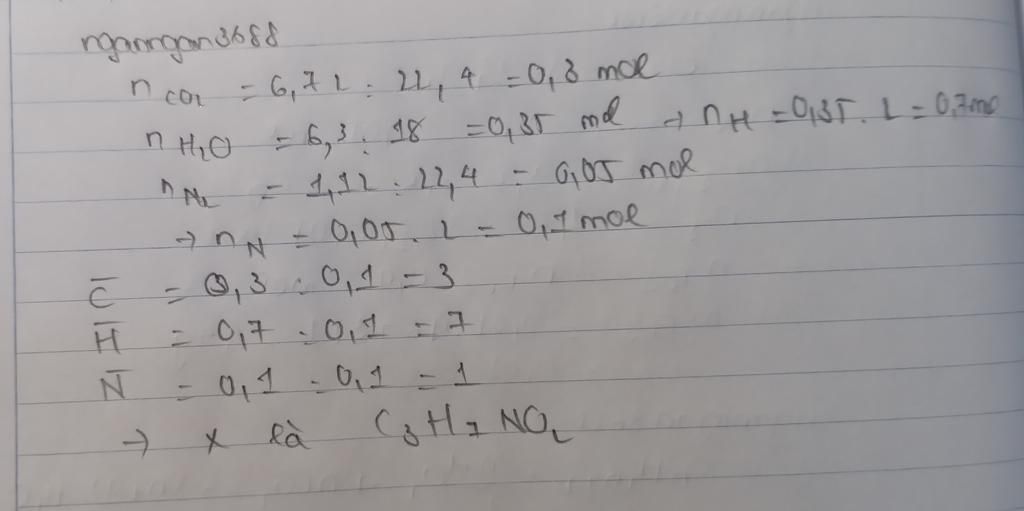 nganngan3688
n CO2 = 6,72 : 22,4 = 0,3 mol
n H2O = 6,3 : 18 = 0,35 mol → n H = 0,35 . 2 = 0,7 mo
n N2 = 1,12 : 22,4 = 0,05 mol
→ n N = 0,05 . 2 = 0,1 mol
C̅ = 0,3 : 0,1 = 3
H̅ = 0,7 : 0,1 = 7
N̅ = 0,1 : 0,1 = 1
→ X là C3H7NO2